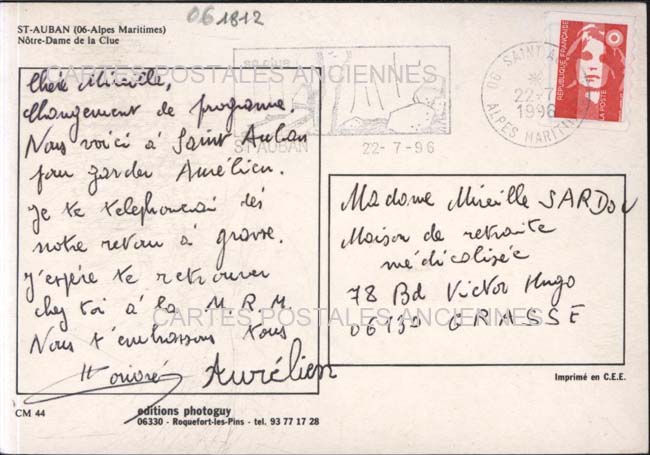 06 1812
ST-AUBAN (06-Alpes Maritimes)
Nôtre-Dame de la Clue
CARTES POSTALES ANCIENNES
ST AUBAN
22-7-96
06 SAINT A
22-7
1996
ALPES MARITIM
REPUBLIQUE FRANÇAISE
LA POSTE
Chère Mireille,
Changement de programme.
Nous voici à Saint Auban
pour garder Aurélien.
Je te telephonerai dès
notre retour à grasse.
J'espère te retrouver
chez toi à la M.R.M.
Nous t'embrassons tous
Honoré
Aurélien
Madame Mireille SARDOU
Maison de retraite
médicalisée
78 Bd Victor Hugo
06130 GRASSE
CARTES POSTALES ANCIENNES
Imprimé en C.E.E.
CM 44
editions photoguy
06330 - Roquefort-les-Pins - tel. 93 77 17 28